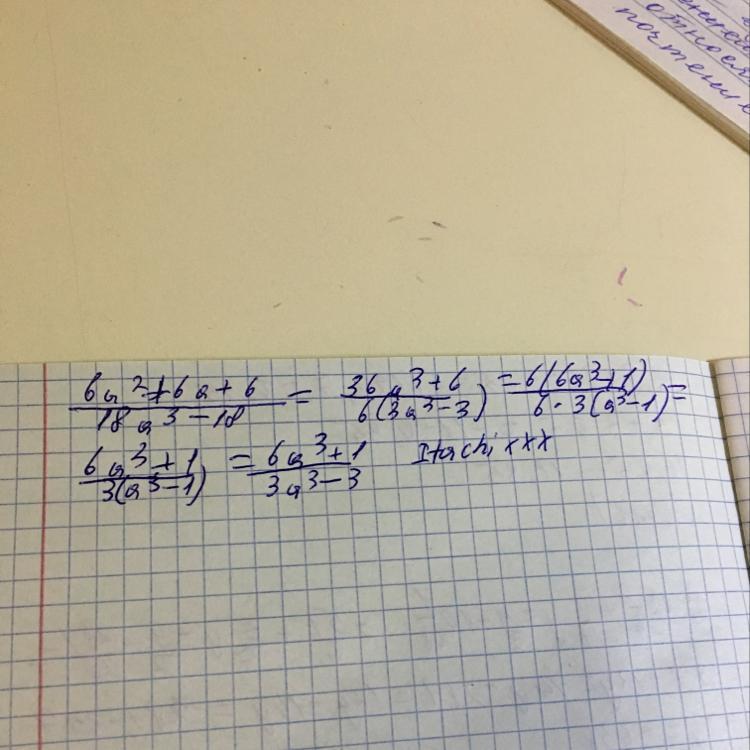 енией
относя
почтени
(6a² + 6a + 6)/(18a³ - 18) = (36a³ + 6)/(6(3a³ - 3)) = (6(6a³ + 1))/(6 · 3(a³ - 1)) =
(6a³ + 1)/(3(a³ - 1)) = (6a³ + 1)/(3a³ - 3) Itachi xxx